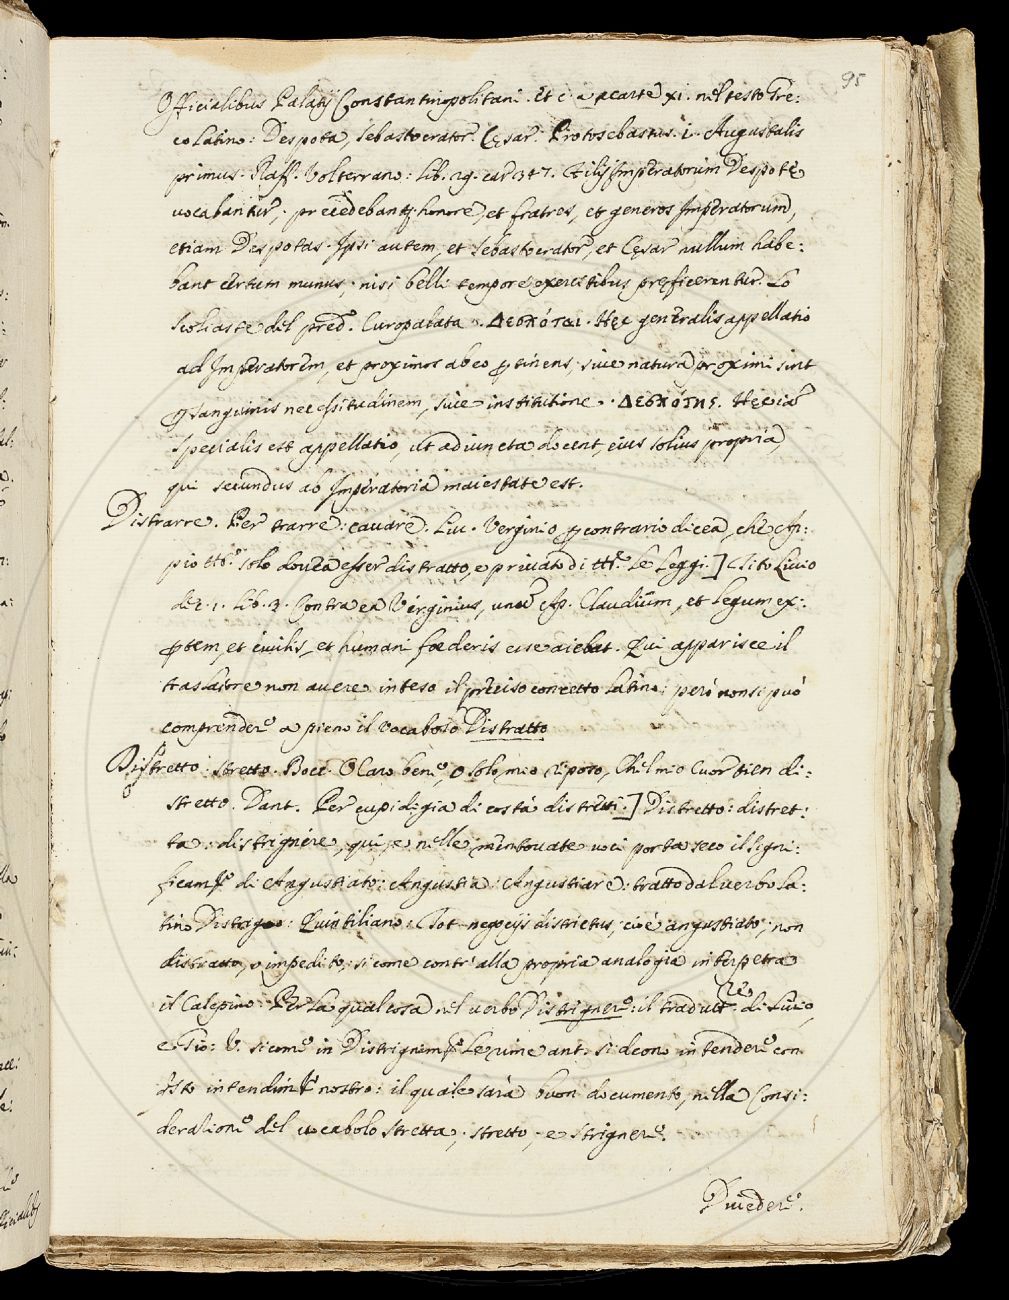 95
Officialibus Palatij Constantinopolitani. Et è a carte XI. nel testo Gre:
co Latino: Despota, Sebastocrator. Cęsar. Protosebastus. i. Augustalis
primus. Raff. Volterrano: Lib. 29. car. 347. Filij Imperatorum Despotę
vocabantur, precedebantq. honore, et fratres, et generos Imperatorum,
etiam Despotas. Ipsi autem, et Sebastocrator, et Cęsar nullum habe:
bant certum munus, nisi belli tempore exercitibus pręficerentur. Lo
Scoliaste del pred.o Curopalata. Δεσπόται. Hęc generalis appellatio
ad Imperatorem, et proximos ab eo ptinens, sive natura proximi sint
p sanguinis necessitudinem, sive institutione. Δεσπότης. Hęc
specialis est appellatio, ut adiuncta docent, eius solius propria,
qui secundus ab Imperatoria maiestate est.
Distrarre. Per trarre: cavare. Liv. Verginio p contrario dicea, che Ap:
pio solo dovea esser distratto, e privato di Le Leggi.] Tito Livio
dec. 1. Lib. 3. Contra ea Verginius, unum Ap. Claudium, et legum ex:
ptem, et civilis, et humani foederis esse aiebat. Qui apparisce il
traslatore non avere inteso il preciso concetto Latino: però non si può
comprendere a pieno il vocabolo Distratto
Distretto: stretto. Bocc. O Caro bene, o solo mio riposo, Che'l mio cuor tien di:
stretto. Dant. Per cupidigia di costà distretti.] Distretto: distret:
ta: distrignere, qui, e nelle mentovate voci porta seco il signi:
ficam.to di Angustiato: Angustia: Angustiare: tratto dal verbo La:
tino Distringo: Quintiliano: Tot negocijs districtus; cioè angustiato; non
distratto, o impedito, si come contr'alla propria analogia interpetra
il Calepino. Per La qual cosa nel verbo Distrignere: il traduttre di Livio,
e Gio: V. si come in Distrignem.to Le rime ant. si deono intendere con
isto intendim.to nostro: il quale sarà buon documento, nella Consi:
derazione del vocabolo stretta, stretto, e strignere.
Divedere.